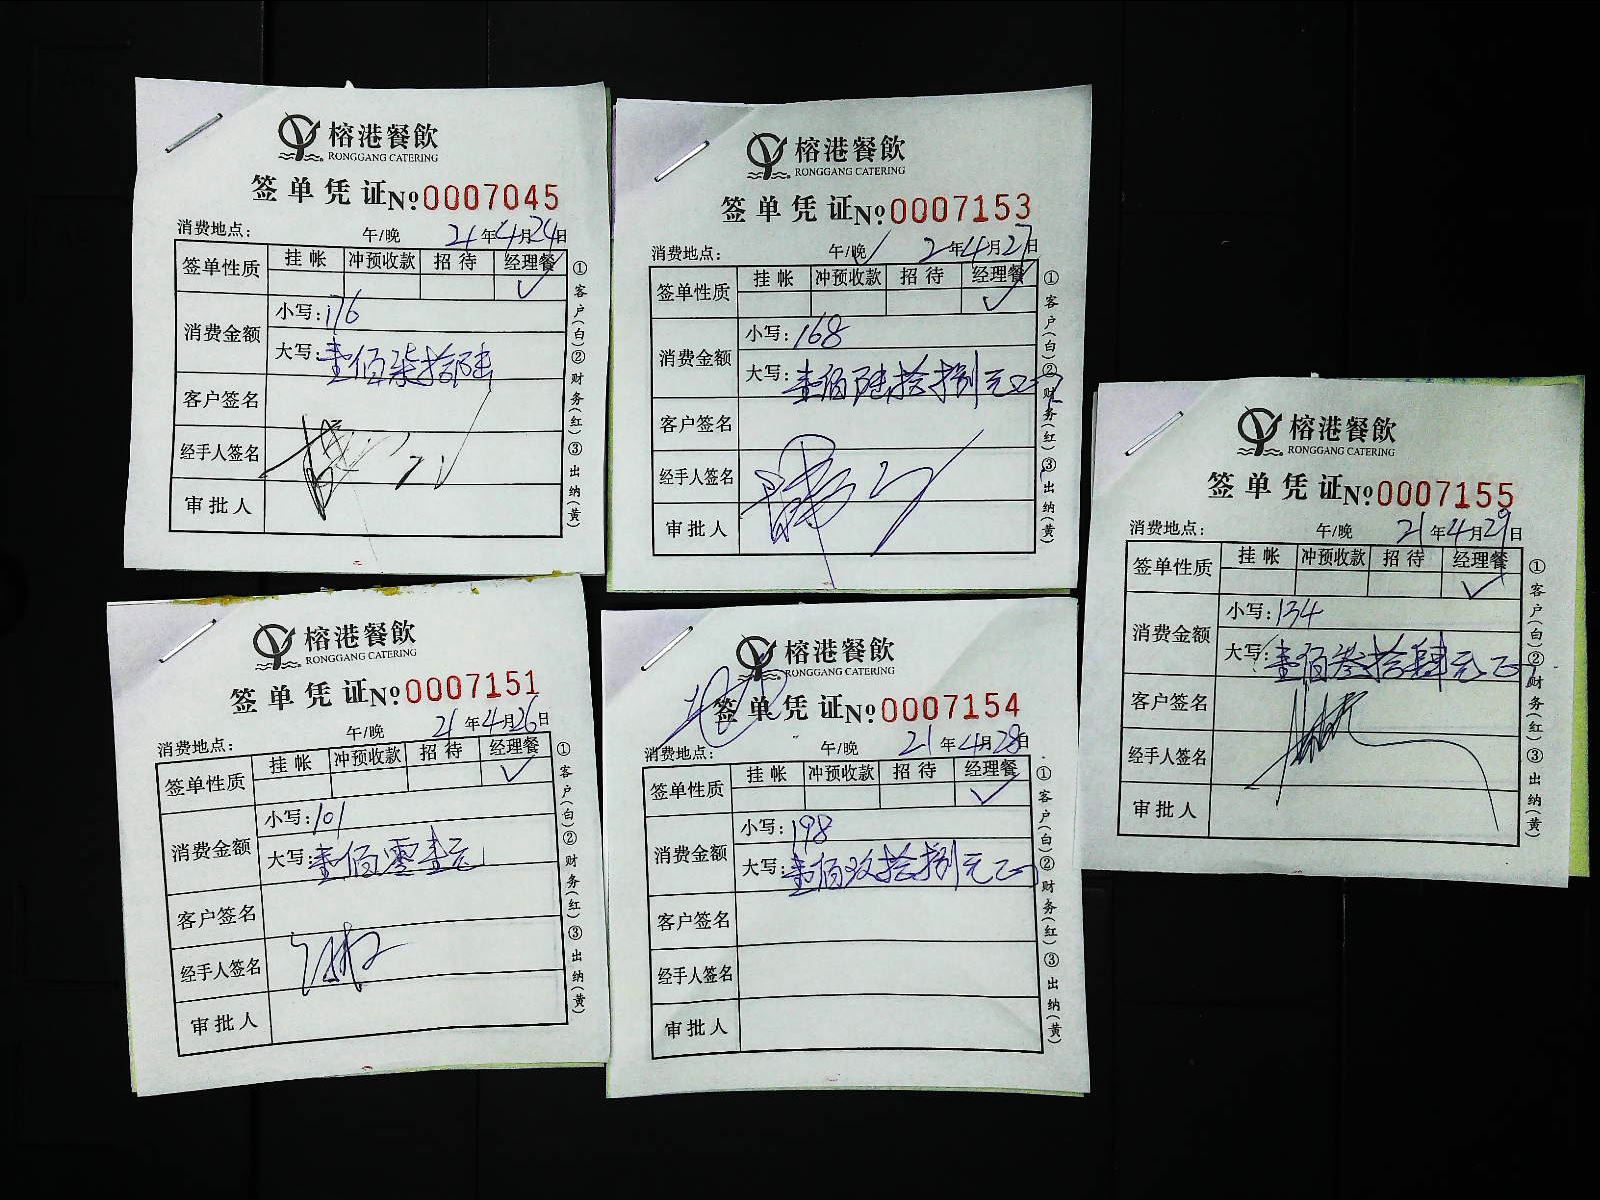 榕港餐飲
RONGGANG CATERING
签单凭证 No 0007045
消费地点: 午/晚 21年4月24日
签单性质 挂帐 冲预收款 招待 经理餐
✓
消费金额 小写: 176
大写: 壹佰柒拾陆
客户签名
经手人签名
审批人
①客户(白)②财务(红)③出纳(黄)
榕港餐飲
RONGGANG CATERING
签单凭证 No 0007153
消费地点: 午/晚 ✓ 2年4月27日
签单性质 挂帐 冲预收款 招待 经理餐
✓
消费金额 小写: 168
大写: 壹佰陆拾捌元正
客户签名
经手人签名
审批人
①客户(白)②财务(红)③出纳(黄)
榕港餐飲
RONGGANG CATERING
签单凭证 No 0007155
消费地点: 午/晚 21年4月29日
签单性质 挂帐 冲预收款 招待 经理餐
✓
消费金额 小写: 134
大写: 壹佰叁拾肆元正
客户签名
经手人签名
审批人
①客户(白)②财务(红)③出纳(黄)
榕港餐飲
RONGGANG CATERING
签单凭证 No 0007151
消费地点: 午/晚 21年4月26日
签单性质 挂帐 冲预收款 招待 经理餐
✓
消费金额 小写: 101
大写: 壹佰零壹元
客户签名
经手人签名
审批人
①客户(白)②财务(红)③出纳(黄)
榕港餐飲
RONGGANG CATERING
签单凭证 No 0007154
消费地点: 午/晚 21年4月28日
签单性质 挂帐 冲预收款 招待 经理餐
✓
消费金额 小写: 198
大写: 壹佰玖拾捌元正
客户签名
经手人签名
审批人
①客户(白)②财务(红)③出纳(黄)